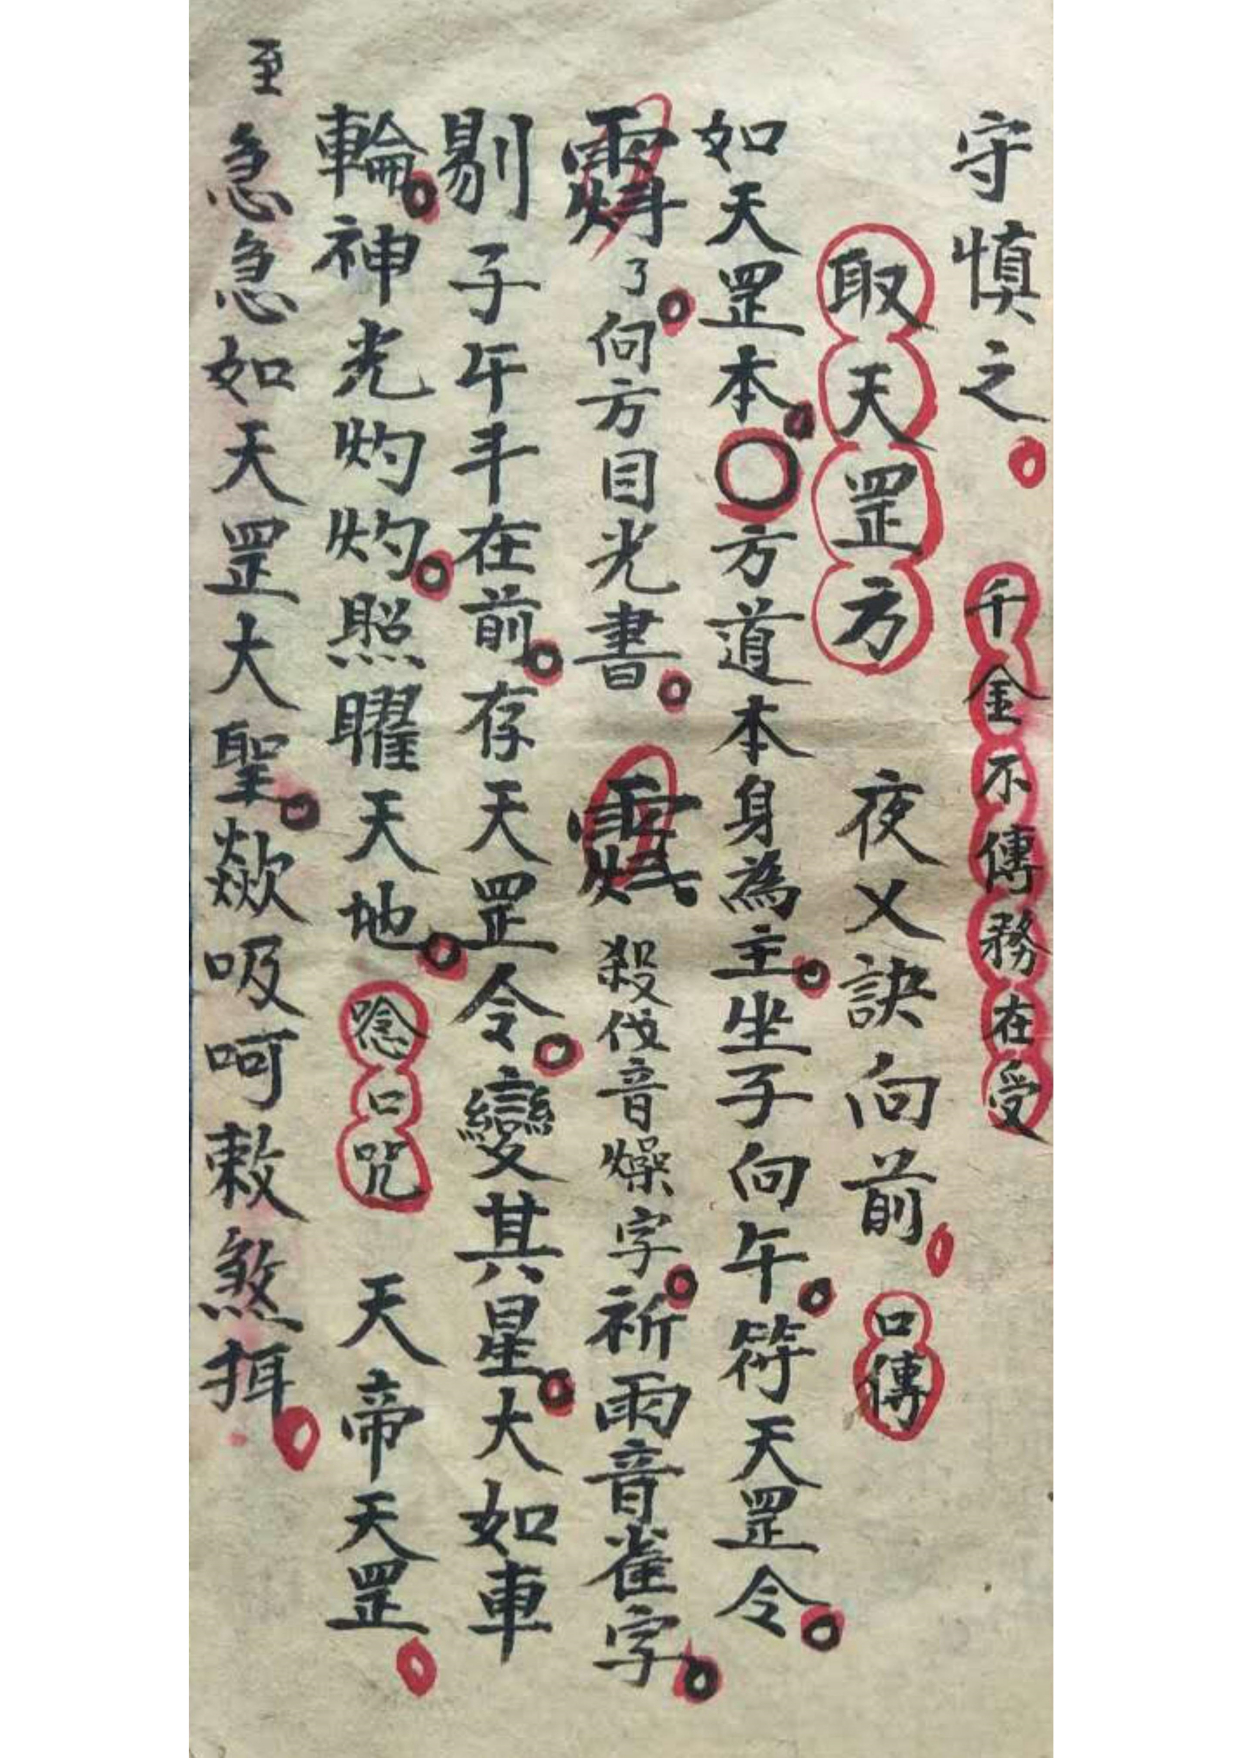 守慎之。千金不傳務在受
取天罡方 夜乂訣向前。口傳
如天罡本。〇方道本身為主。坐子向午。符天罡令。
了。向方目光書。 殺伐音燥字。祈雨音雀字。
剔子午斗在前。存天罡令。變其星。大如車
輪。神光灼灼。照曜天地。唸口咒 天帝天罡。
至急急如天罡大聖。歘吸呵敕煞挕。